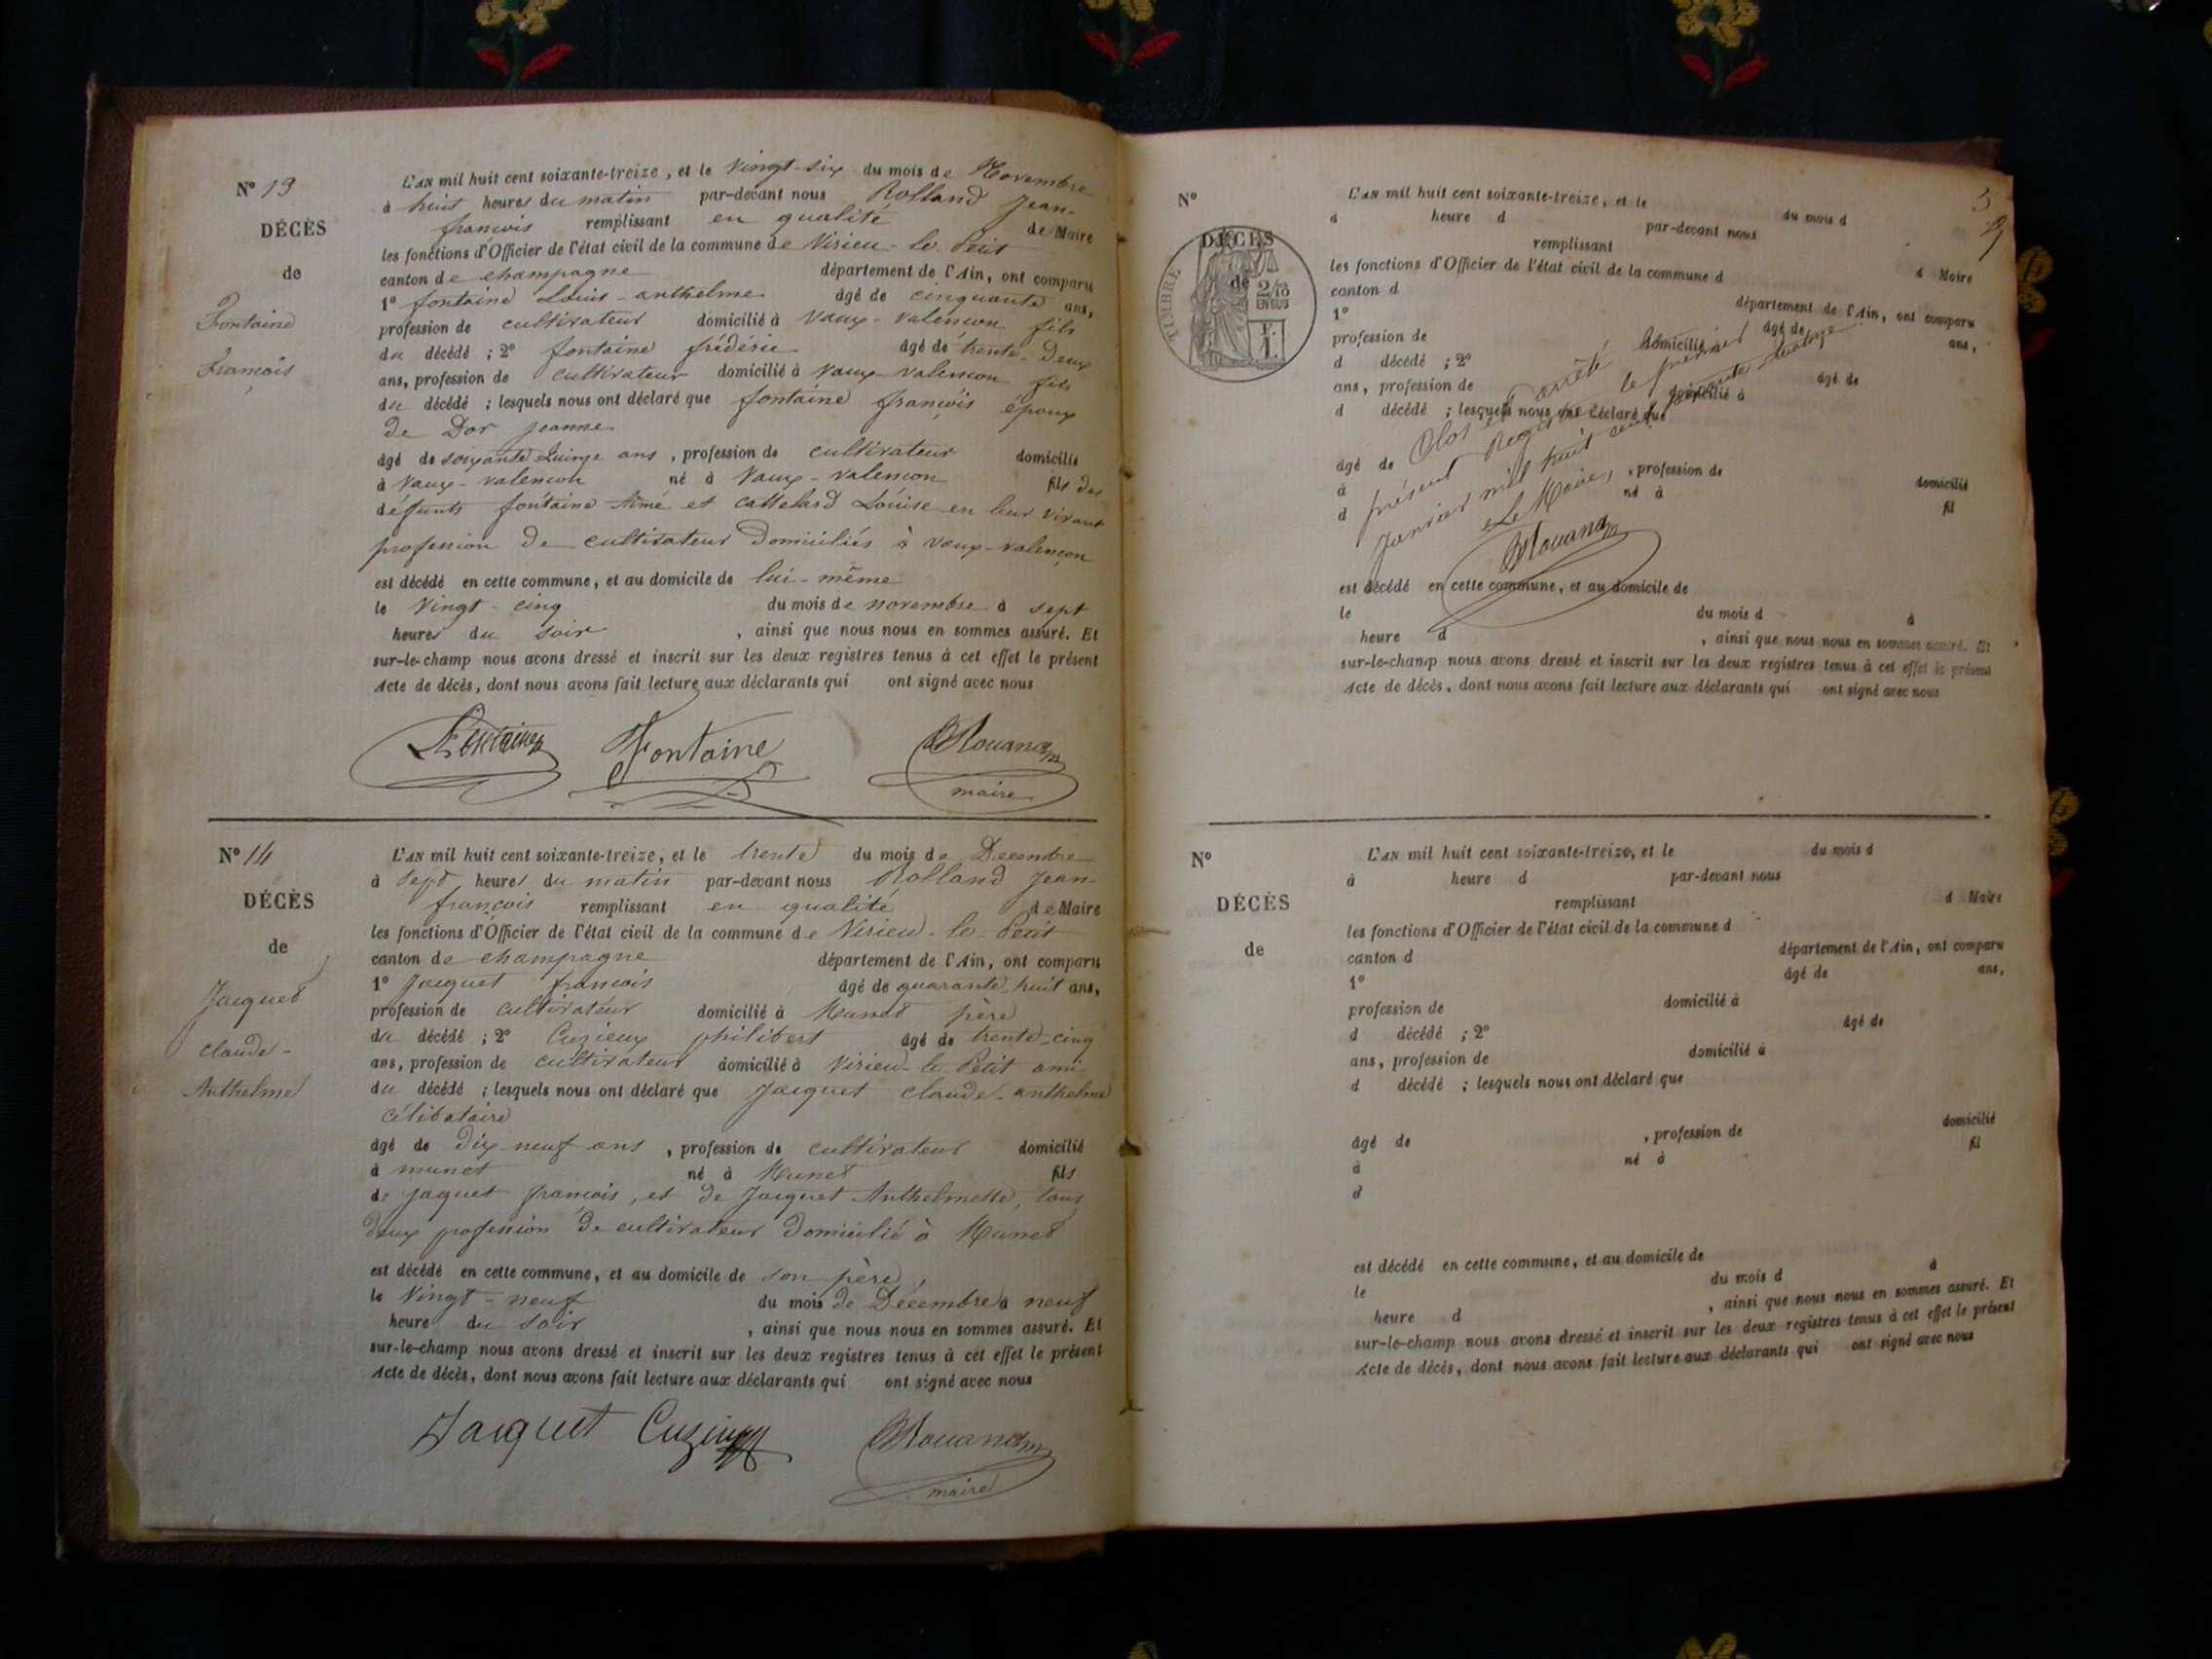 N° 13
DÉCÈS
de
Fontaine
François
L'AN mil huit cent soixante-treize, et le vingt-six du mois de Novembre
à huit heures du matin par-devant nous Rolland Jean-
françois remplissant en qualité de Maire
les fonctions d'Officier de l'état civil de la commune de Virieu-le-Petit
canton de champagne département de l'Ain, ont comparu
1° fontaine Louis-anthelme âgé de cinquante ans,
profession de cultivateur domicilié à Vaux-valencon fils
du décédé ; 2° fontaine frédéric âgé de trente-Deux
ans, profession de cultivateur domicilié à Vaux-valencon fils
du décédé ; lesquels nous ont déclaré que fontaine françois époux
de Dor jeanne
âgé de soixante Quinze ans, profession de cultivateur domicilié
à Vaux-valencon né à Vaux-valencon fils des
défunts fontaine Aimé et cattelard Louise en leur vivant
profession De cultivateur Domiciliés à Vaux-valençon
est décédé en cette commune, et au domicile de lui-même
le Vingt-cinq du mois de novembre à sept
heures du soir, ainsi que nous nous en sommes assuré. Et
sur-le-champ nous avons dressé et inscrit sur les deux registres tenus à cet effet le présent
Acte de décès, dont nous avons fait lecture aux déclarants qui ont signé avec nous
Fontaine Fontaine
maire
N° 14
DÉCÈS
de
Jacquet
claude-
Anthelme
L'AN mil huit cent soixante-treize, et le trente du mois de Decembre
à sept heures du matin par-devant nous Rolland Jean-
françois remplissant en qualité de Maire
les fonctions d'Officier de l'état civil de la commune de Virieu-le-Petit
canton de champagne département de l'Ain, ont comparu
1° Jacquet françois âgé de quarante-huit ans,
profession de cultivateur domicilié à Munet père
du décédé ; 2° Cuzieux philibert âgé de trente-cinq
ans, profession de cultivateur domicilié à Virieu-le Petit ami
du décédé ; lesquels nous ont déclaré que Jacquet claude-anthelme
célibataire
âgé de Dix-neuf ans, profession de cultivateur domicilié
à munet né à Munet fils
de jaquet françois, et de Jacquet Anthelmette, tous
deux profession de cultivateur Domicilié à Munet
est décédé en cette commune, et au domicile de son père,
le Vingt-neuf du mois de Décembre à neuf
heure du soir, ainsi que nous nous en sommes assuré. Et
sur-le-champ nous avons dressé et inscrit sur les deux registres tenus à cet effet le présent
Acte de décès, dont nous avons fait lecture aux déclarants qui ont signé avec nous
Jacquet Cuzieux
maire
N°
DÉCÈS
de
TIMBRE
2/10
EN SUS
L'AN mil huit cent soixante-treize, et le du mois d
à heure d par-devant nous
remplissant d Maire
les fonctions d'Officier de l'état civil de la commune d
canton d département de l'Ain, ont comparu
1° âgé de ans,
profession de domicilié à
d décédé ; 2° âgé de
ans, profession de domicilié à
d décédé ; lesquels nous ont déclaré que
Clos et arrêté le
présent Registre le premier
Janvier mil huit cent soixante quatorze
Le Maire,
âgé de , profession de domicilié
à né à fil
d
est décédé en cette commune, et au domicile de
le du mois d à
heure d , ainsi que nous nous en sommes assuré. Et
sur-le-champ nous avons dressé et inscrit sur les deux registres tenus à cet effet le présent
Acte de décès, dont nous avons fait lecture aux déclarants qui ont signé avec nous
N°
DÉCÈS
de
L'AN mil huit cent soixante-treize, et le du mois d
à heure d par-devant nous
remplissant d Maire
les fonctions d'Officier de l'état civil de la commune d
canton d département de l'Ain, ont comparu
1° âgé de ans,
profession de domicilié à
d décédé ; 2° âgé de
ans, profession de domicilié à
d décédé ; lesquels nous ont déclaré que
âgé de , profession de domicilié
à né à fil
d
est décédé en cette commune, et au domicile de
le du mois d à
heure d , ainsi que nous nous en sommes assuré. Et
sur-le-champ nous avons dressé et inscrit sur les deux registres tenus à cet effet le présent
Acte de décès, dont nous avons fait lecture aux déclarants qui ont signé avec nous